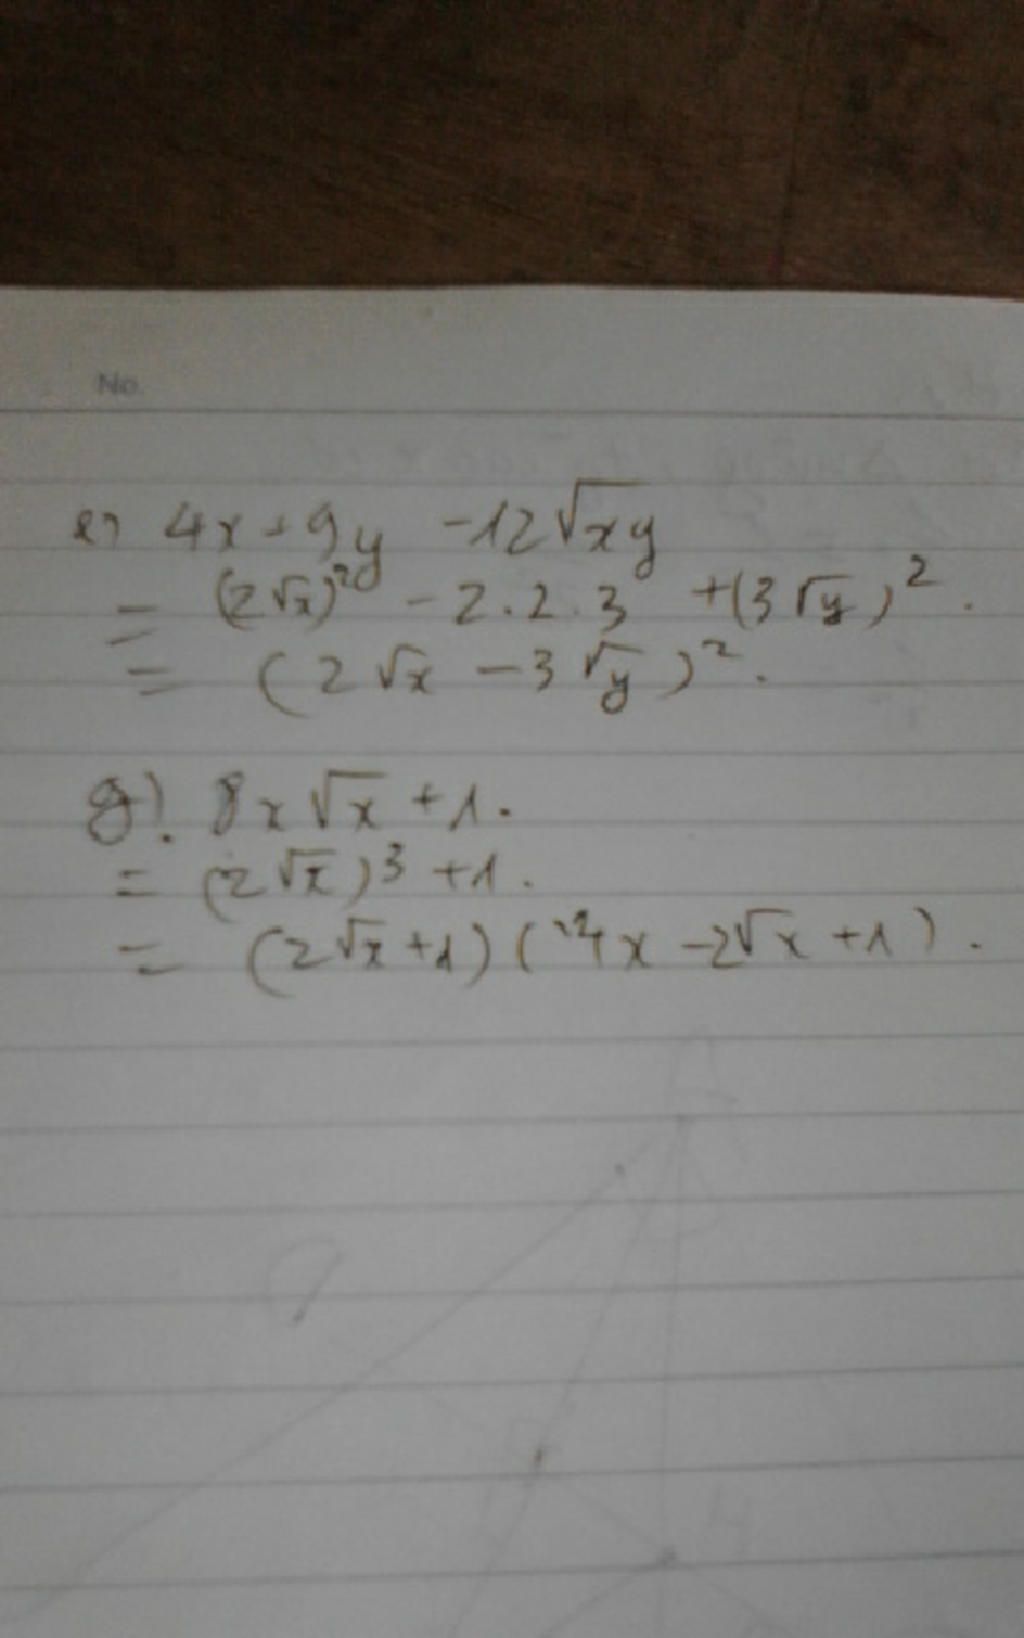 No.
e) 4x + 9y - 12√xy
= (2√x)² - 2.2.3 + (3√y)².
= (2√x - 3√y)².
g). 8x√x + 1.
= (2√x)³ + 1.
= (2√x + 1)(4x - 2√x + 1).